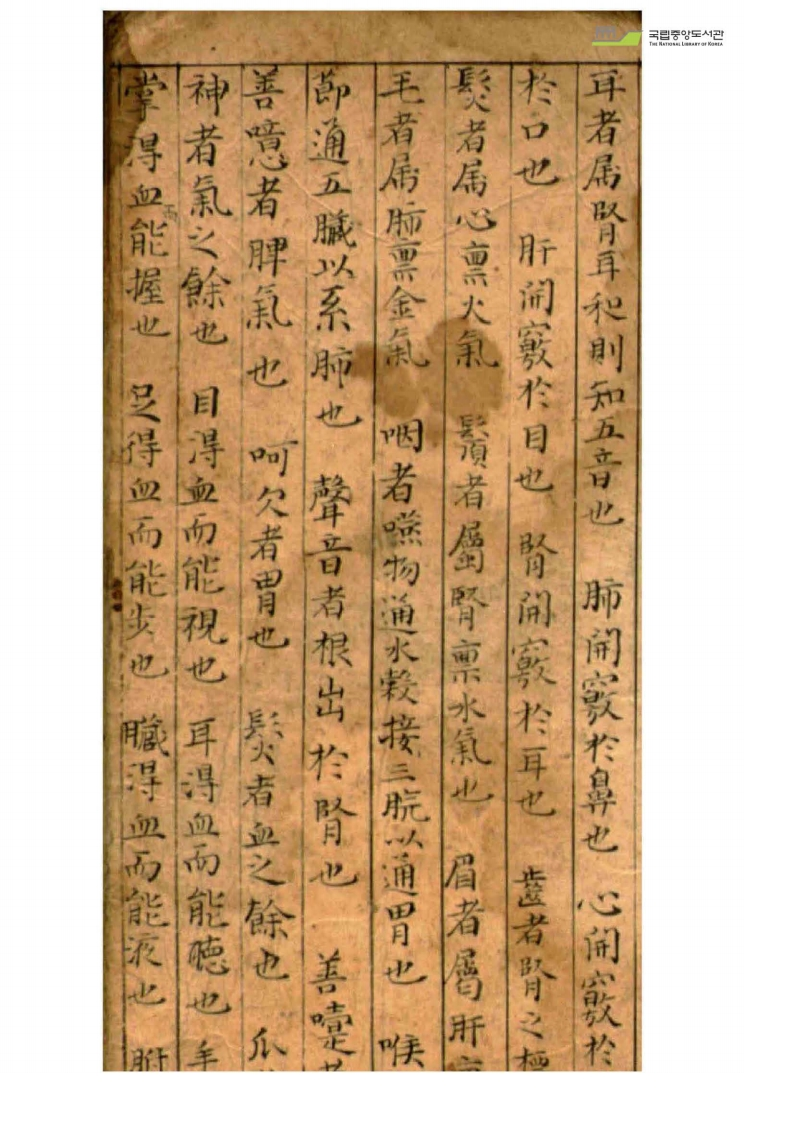 국립중앙도서관
THE NATIONAL LIBRARY OF KOREA
耳者属腎耳和則知五音也 肺開竅於鼻也 心開竅於
於口也 肝開竅於目也 腎開竅於耳也 齒者腎之標
髮者属心禀火氣 鬚者屬腎禀水氣也 眉者屬肝
毛者属肺禀金氣 咽者嚥物通水糓接三脘以通胃也 喉
節通五臟以系肺也 聲音者根出於腎也 善嚏
善噫者脾氣也 呵欠者胃也 髮者血之餘也 爪
神者氣之餘也 目淂血而能視也 耳淂血而能聴也 手
掌淂血而能握也 足得血而能步也 臟淂血而能液也 腑